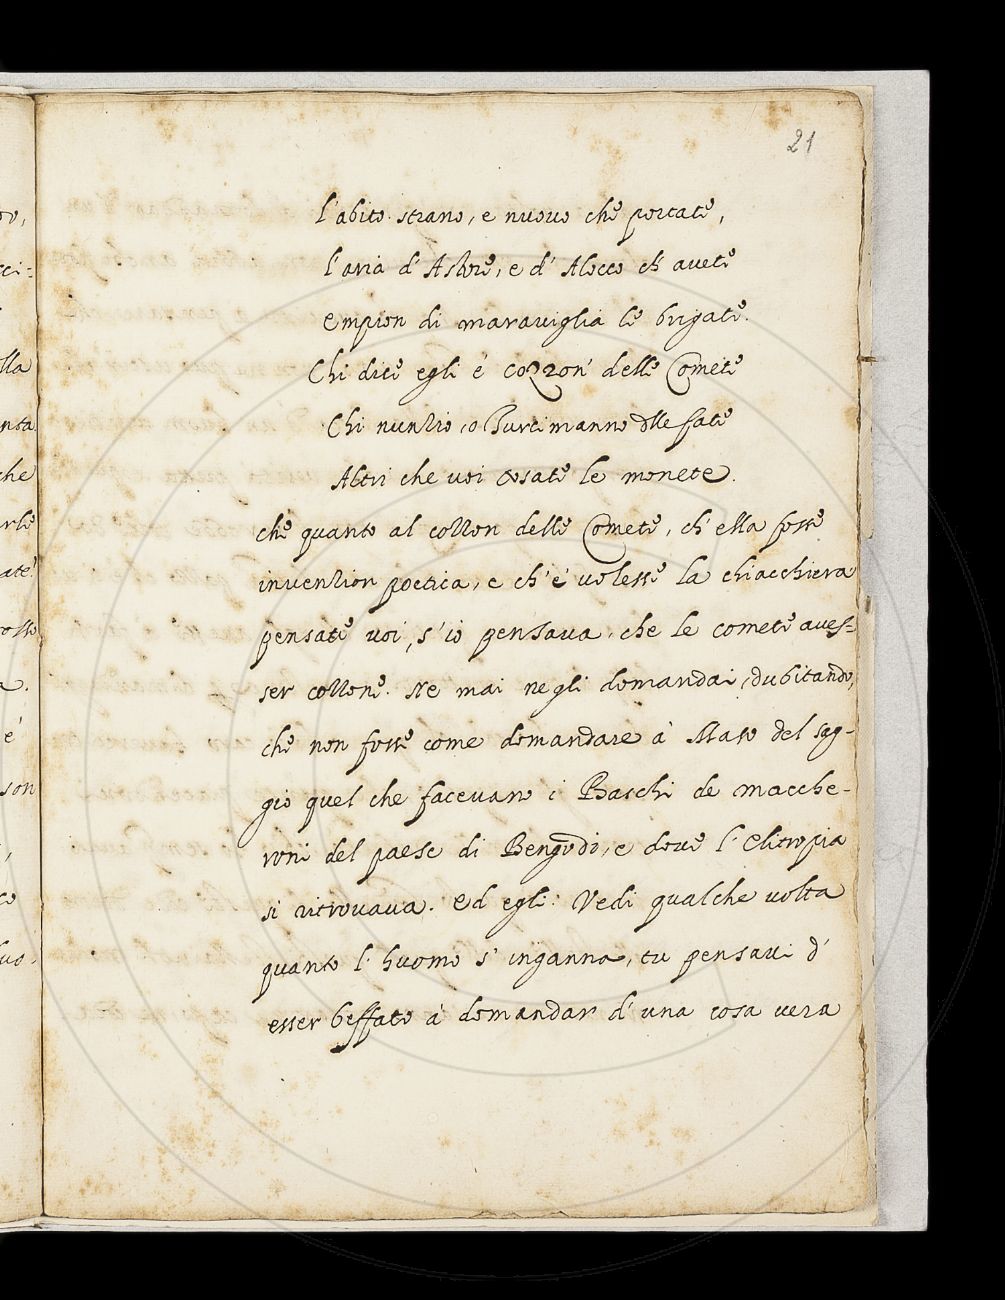 21
l'abito strano, e nuovo che portate,
l'aria d'Astore, e d'Alocco ch'avete
empion di maraviglia le brigate.
Chi dice egli è cozzon' delle Comete
Chi nunzio, o Turcimanno dlle fate
Altri che voi tosate le monete.
che quanto al cozzon delle Comete, ch'ella fosse
invenzion poetica, e ch'e' volesse la chiacchiera
pensate voi, s'io pensava, che le comete aves=
ser cozzone. Ne mai negli domandai, dubitando,
che non fosse come domandare à Maso del sag-
gio quel che facevano i Baschi de macche-
roni del paese di Bengodi, e dove l'Elitropia
si ritrovava. Ed egli: Vedi qualche volta
quanto l'huomo s'inganna, tu pensavi d'
esser beffato à domandar d'una cosa vera